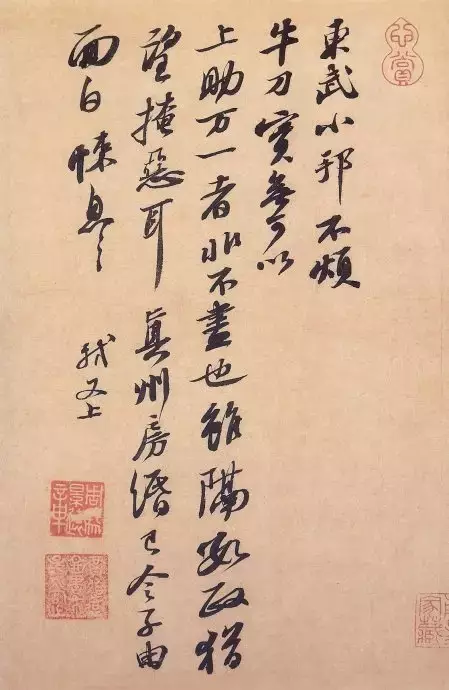 東武小邦不煩
牛刀實無可以
上助万一者非不盡也雖隔數政猶
望掩惡耳真州房緡已令子由
面白悚息之
軾又上